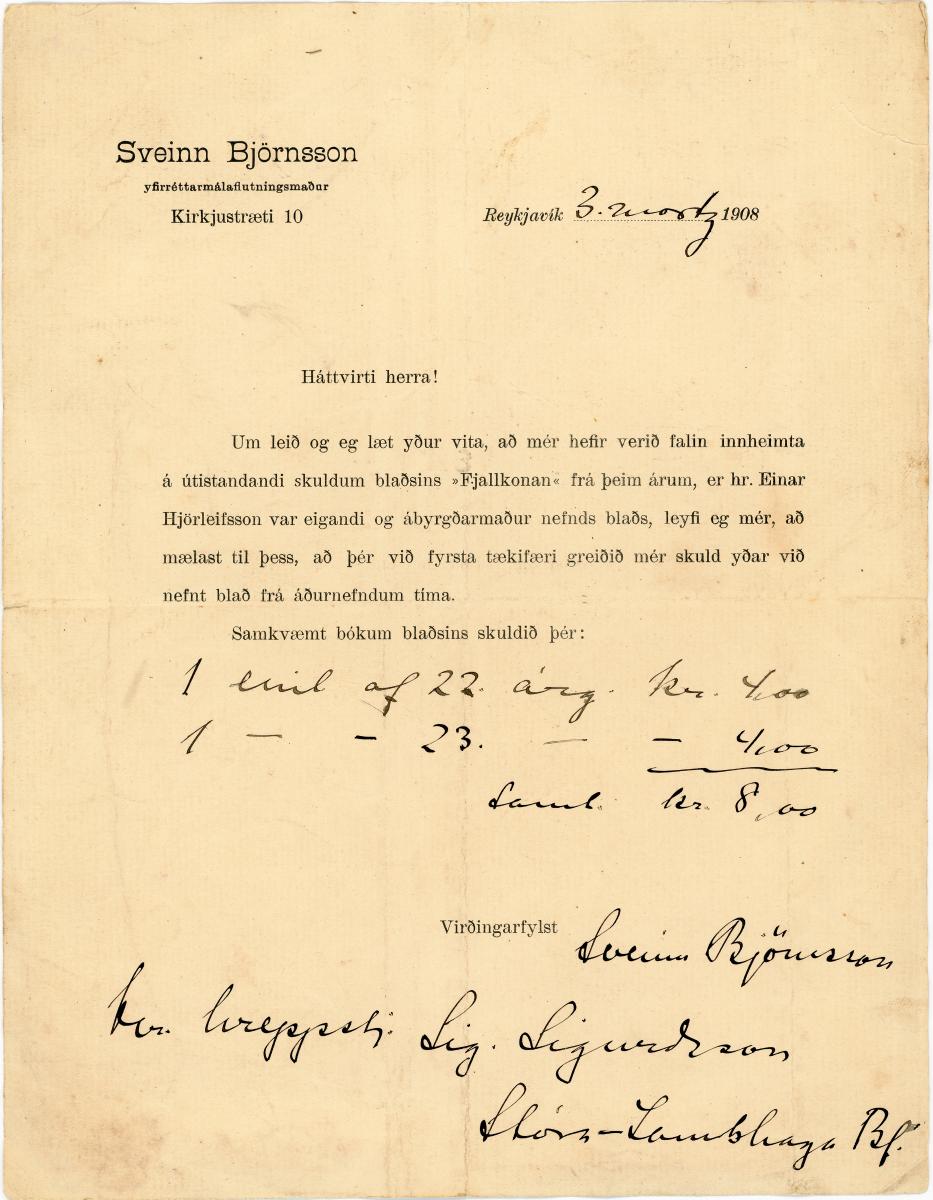 Sveinn Björnsson
yfirréttarmálaflutningsmaður
Kirkjustræti 10
Reykjavík 3. martz 1908
Háttvirti herra!
Um leið og eg læt yður vita, að mér hefir verið falin innheimta
á útistandandi skuldum blaðsins »Fjallkonan« frá þeim árum, er hr. Einar
Hjörleifsson var eigandi og ábyrgðarmaður nefnds blaðs, leyfi eg mér, að
mælast til þess, að þér við fyrsta tækifæri greiðið mér skuld yðar við
nefnt blað frá áðurnefndum tíma.
Samkvæmt bókum blaðsins skuldið þér:
1 eint af 22. árg. kr. 4,00
1 — - 23. — - 4,00
Saml. kr. 8,00
Virðingarfylst
Sveinn Björnsson
hr. hreppstj. Sig. Sigurdsson
Stóra-Lambhaga Bf.